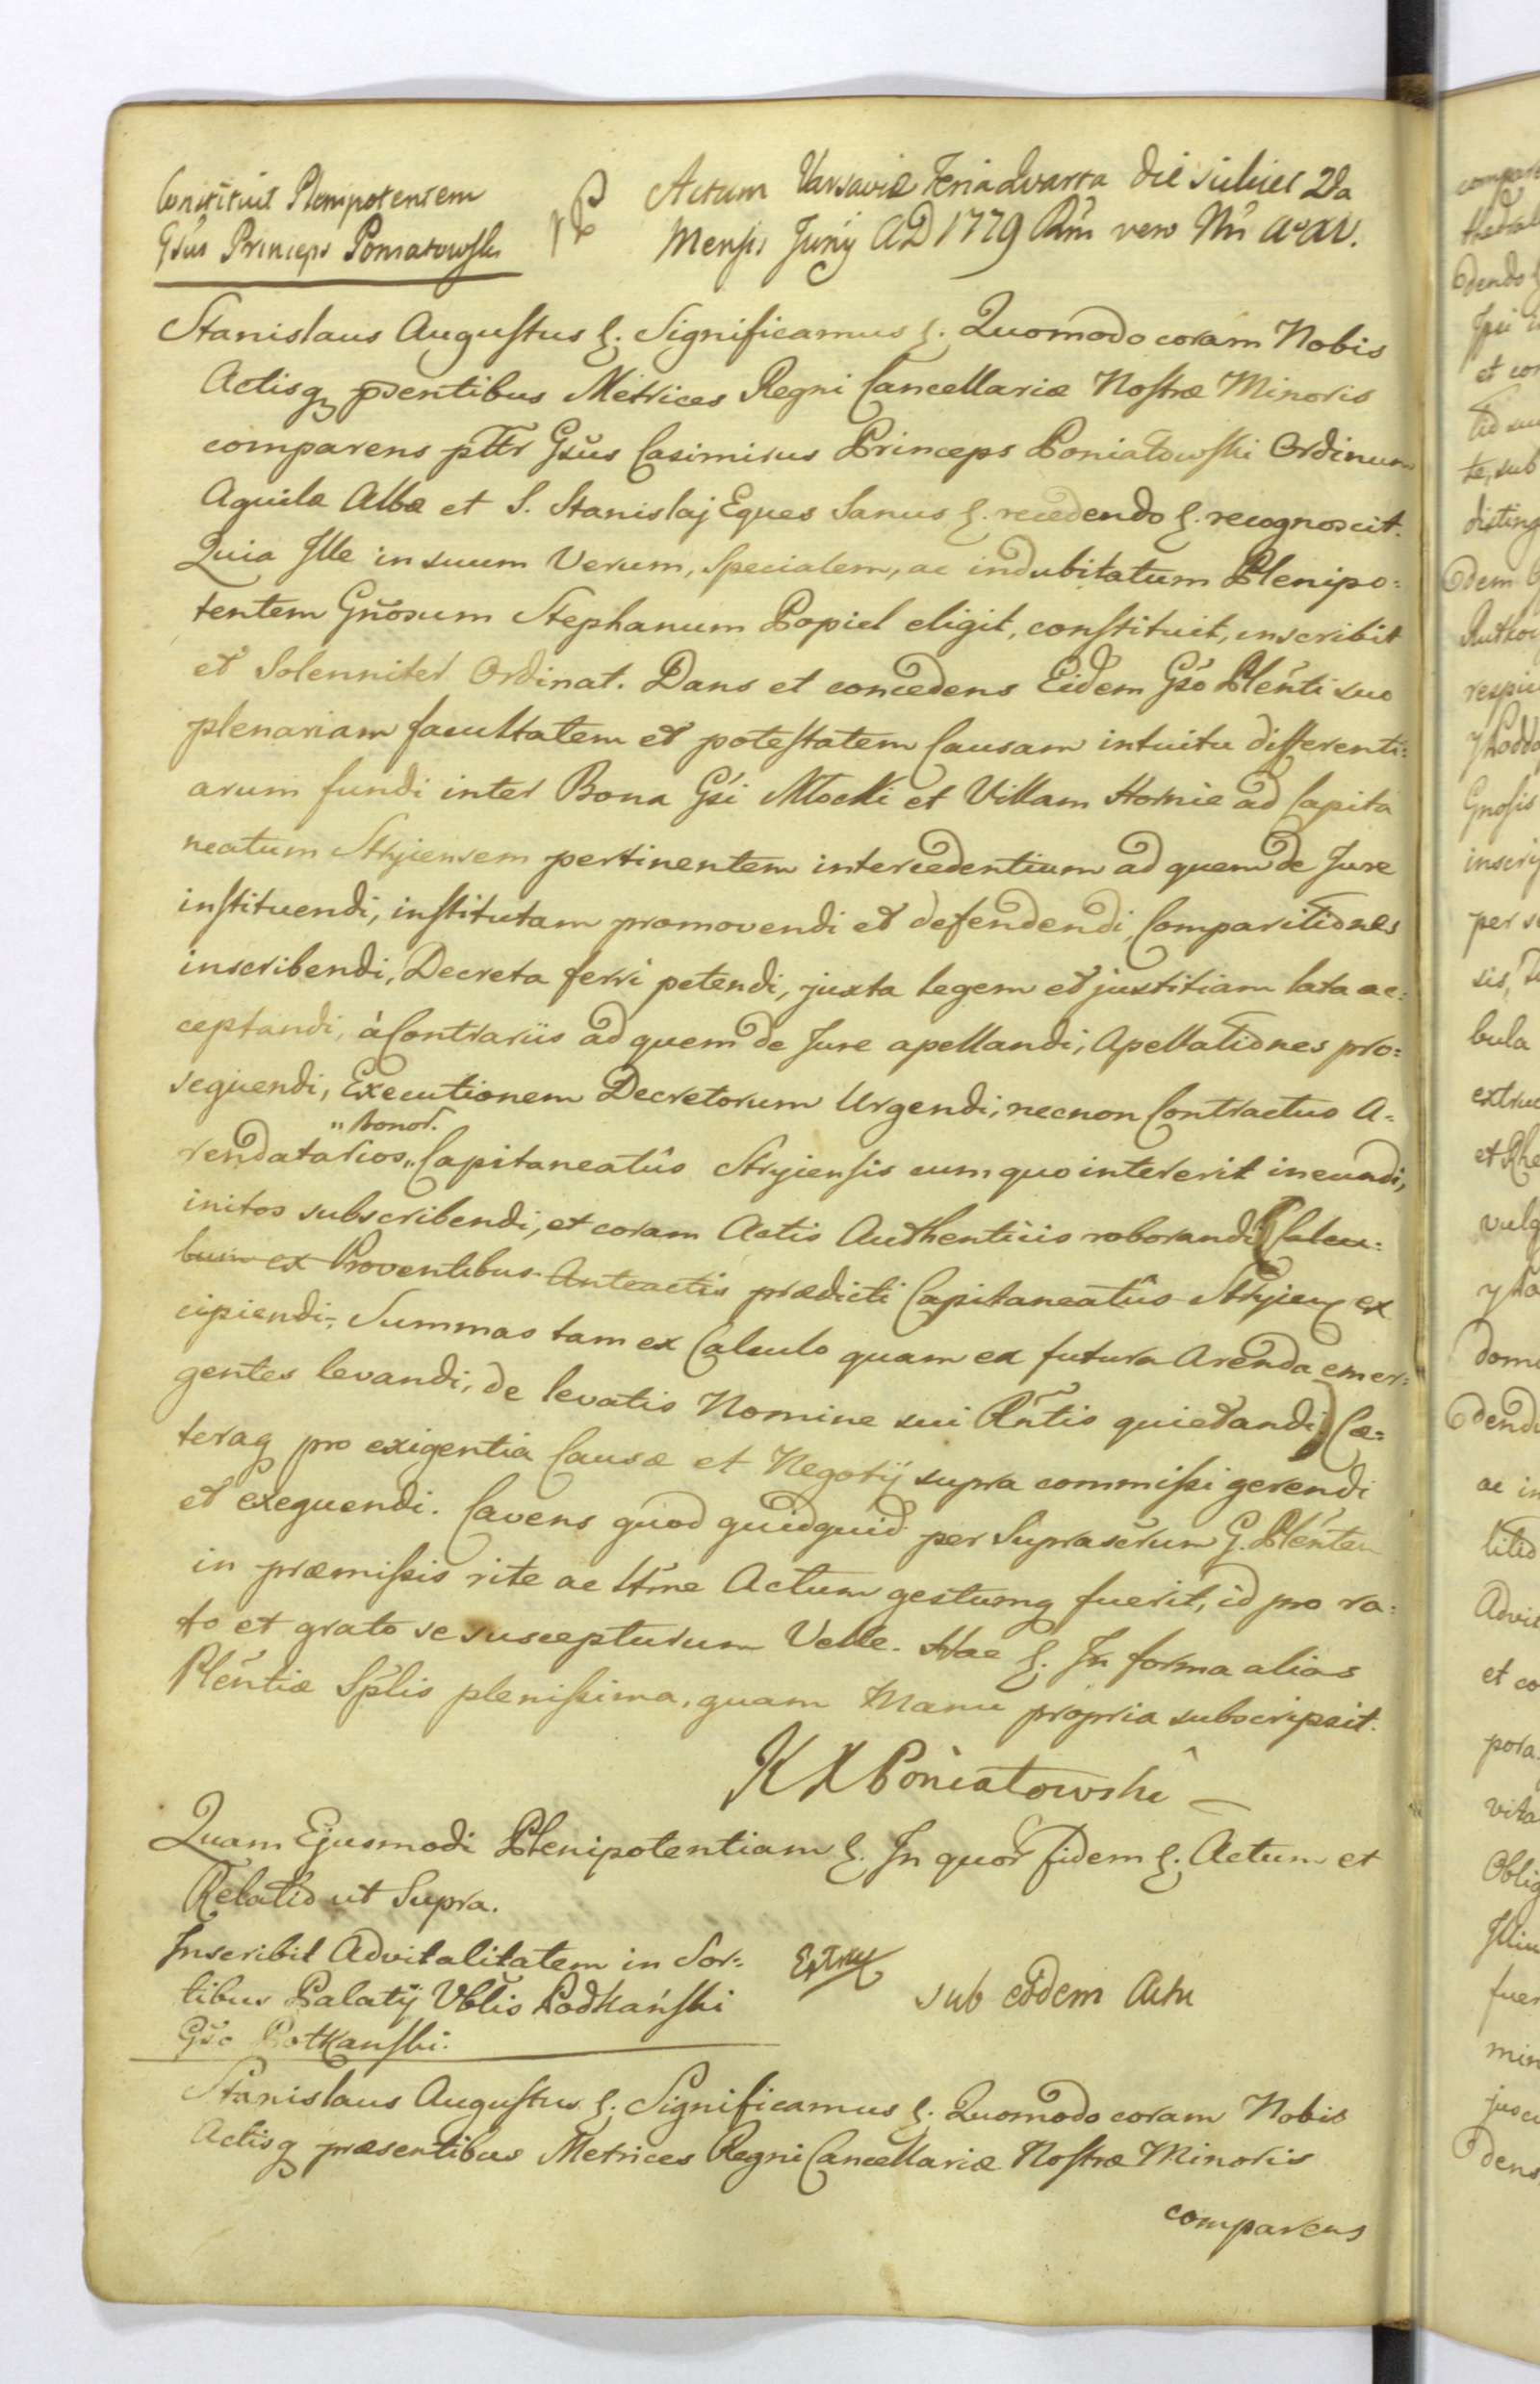 Constituit Plenipotentem
Gsûs Princeps Poniatowski
Actum Varsaviæ Feria Quarta die scilicet 2da
Mensis Junÿ AD 1779 Rñi vero Nri Aº XV.
Stanislaus Augustus &. Significamus &. Quomodo coram Nobis
Actisq pñsentibus Metrices Regni Cancellariæ Nostræ Minoris
comparens pltr Gsûs Casimirus Princeps Poniatowski Ordinum
Aquilæ Albæ et S. Stanislaj Eques Sanus &. recedendo &. recognoscit.
Quia Ille in suum Verum, Specialem, ac indubitatum Plenipo=
tentem Gñosum Stephanum Popiel eligit, constituit, inscribit
et Solenniter Ordinat. Dans et concedens Eidem Gsô Plénti suo
plenariam facultatem et potestatem Causam intuitu differenti=
arum fundi inter Bona Gsi Młocki et Villam Hornie ad Capita
neatum Stryjensem pertinentem intercedentium ad quem de Jure
instituendi, institutam promovendi et defendendi, Comparitiones
inscribendi, Decreta ferri petendi, juxta legem et justitiam lata ac=
ceptandi, à Contrariis ad quem de Jure apellandi, Apellationes pro=
sequendi, Executionem Decretorum Urgendi, necnon Contractus A=
"Bonor.
rendatarios,, Capitaneatûs Stryiensis cum quo intererit ineundi,
initos subscribendi, et coram Actis Authenticis roborandi (Calcu=
lum ex Proventibus Anteactis prædicti Capitaneatûs Stryien ex
cipiendi, Summas tam ex Calculo quam ex futura Arenda emer=
gentes levandi, de levatis Nomine sui Rñtis quietandi) Cæ=
teraq pro exigentia Causæ et Negotÿ supra commissi gerendi
et exequendi. Cavens quod quidquid per Suprascrum G. Plénten
in præmissis rite ac ltme Actum gestumq fuerit, id pro ra=
to et grato se suscepturum Velle. Hac &. In forma alias
Pléntiæ Splis plenissima, quam Manu propria subscripsit.
K X Poniatowski
Quam Ejusmodi Plenipotentiam &. In quor fidem &. Actum et
Relatio ut Supra.
Inscribit Advitalitatem in Sor=
tibus Palatÿ Vblis Podkański
Gsô Potkanski.
Extrax
sub eodem Actu
Stanislaus Augustus &. Significamus &. Quomodo coram Nobis
Actisq præsentibus Metrices Regni Cancellariæ Nostræ Minoris
comparens